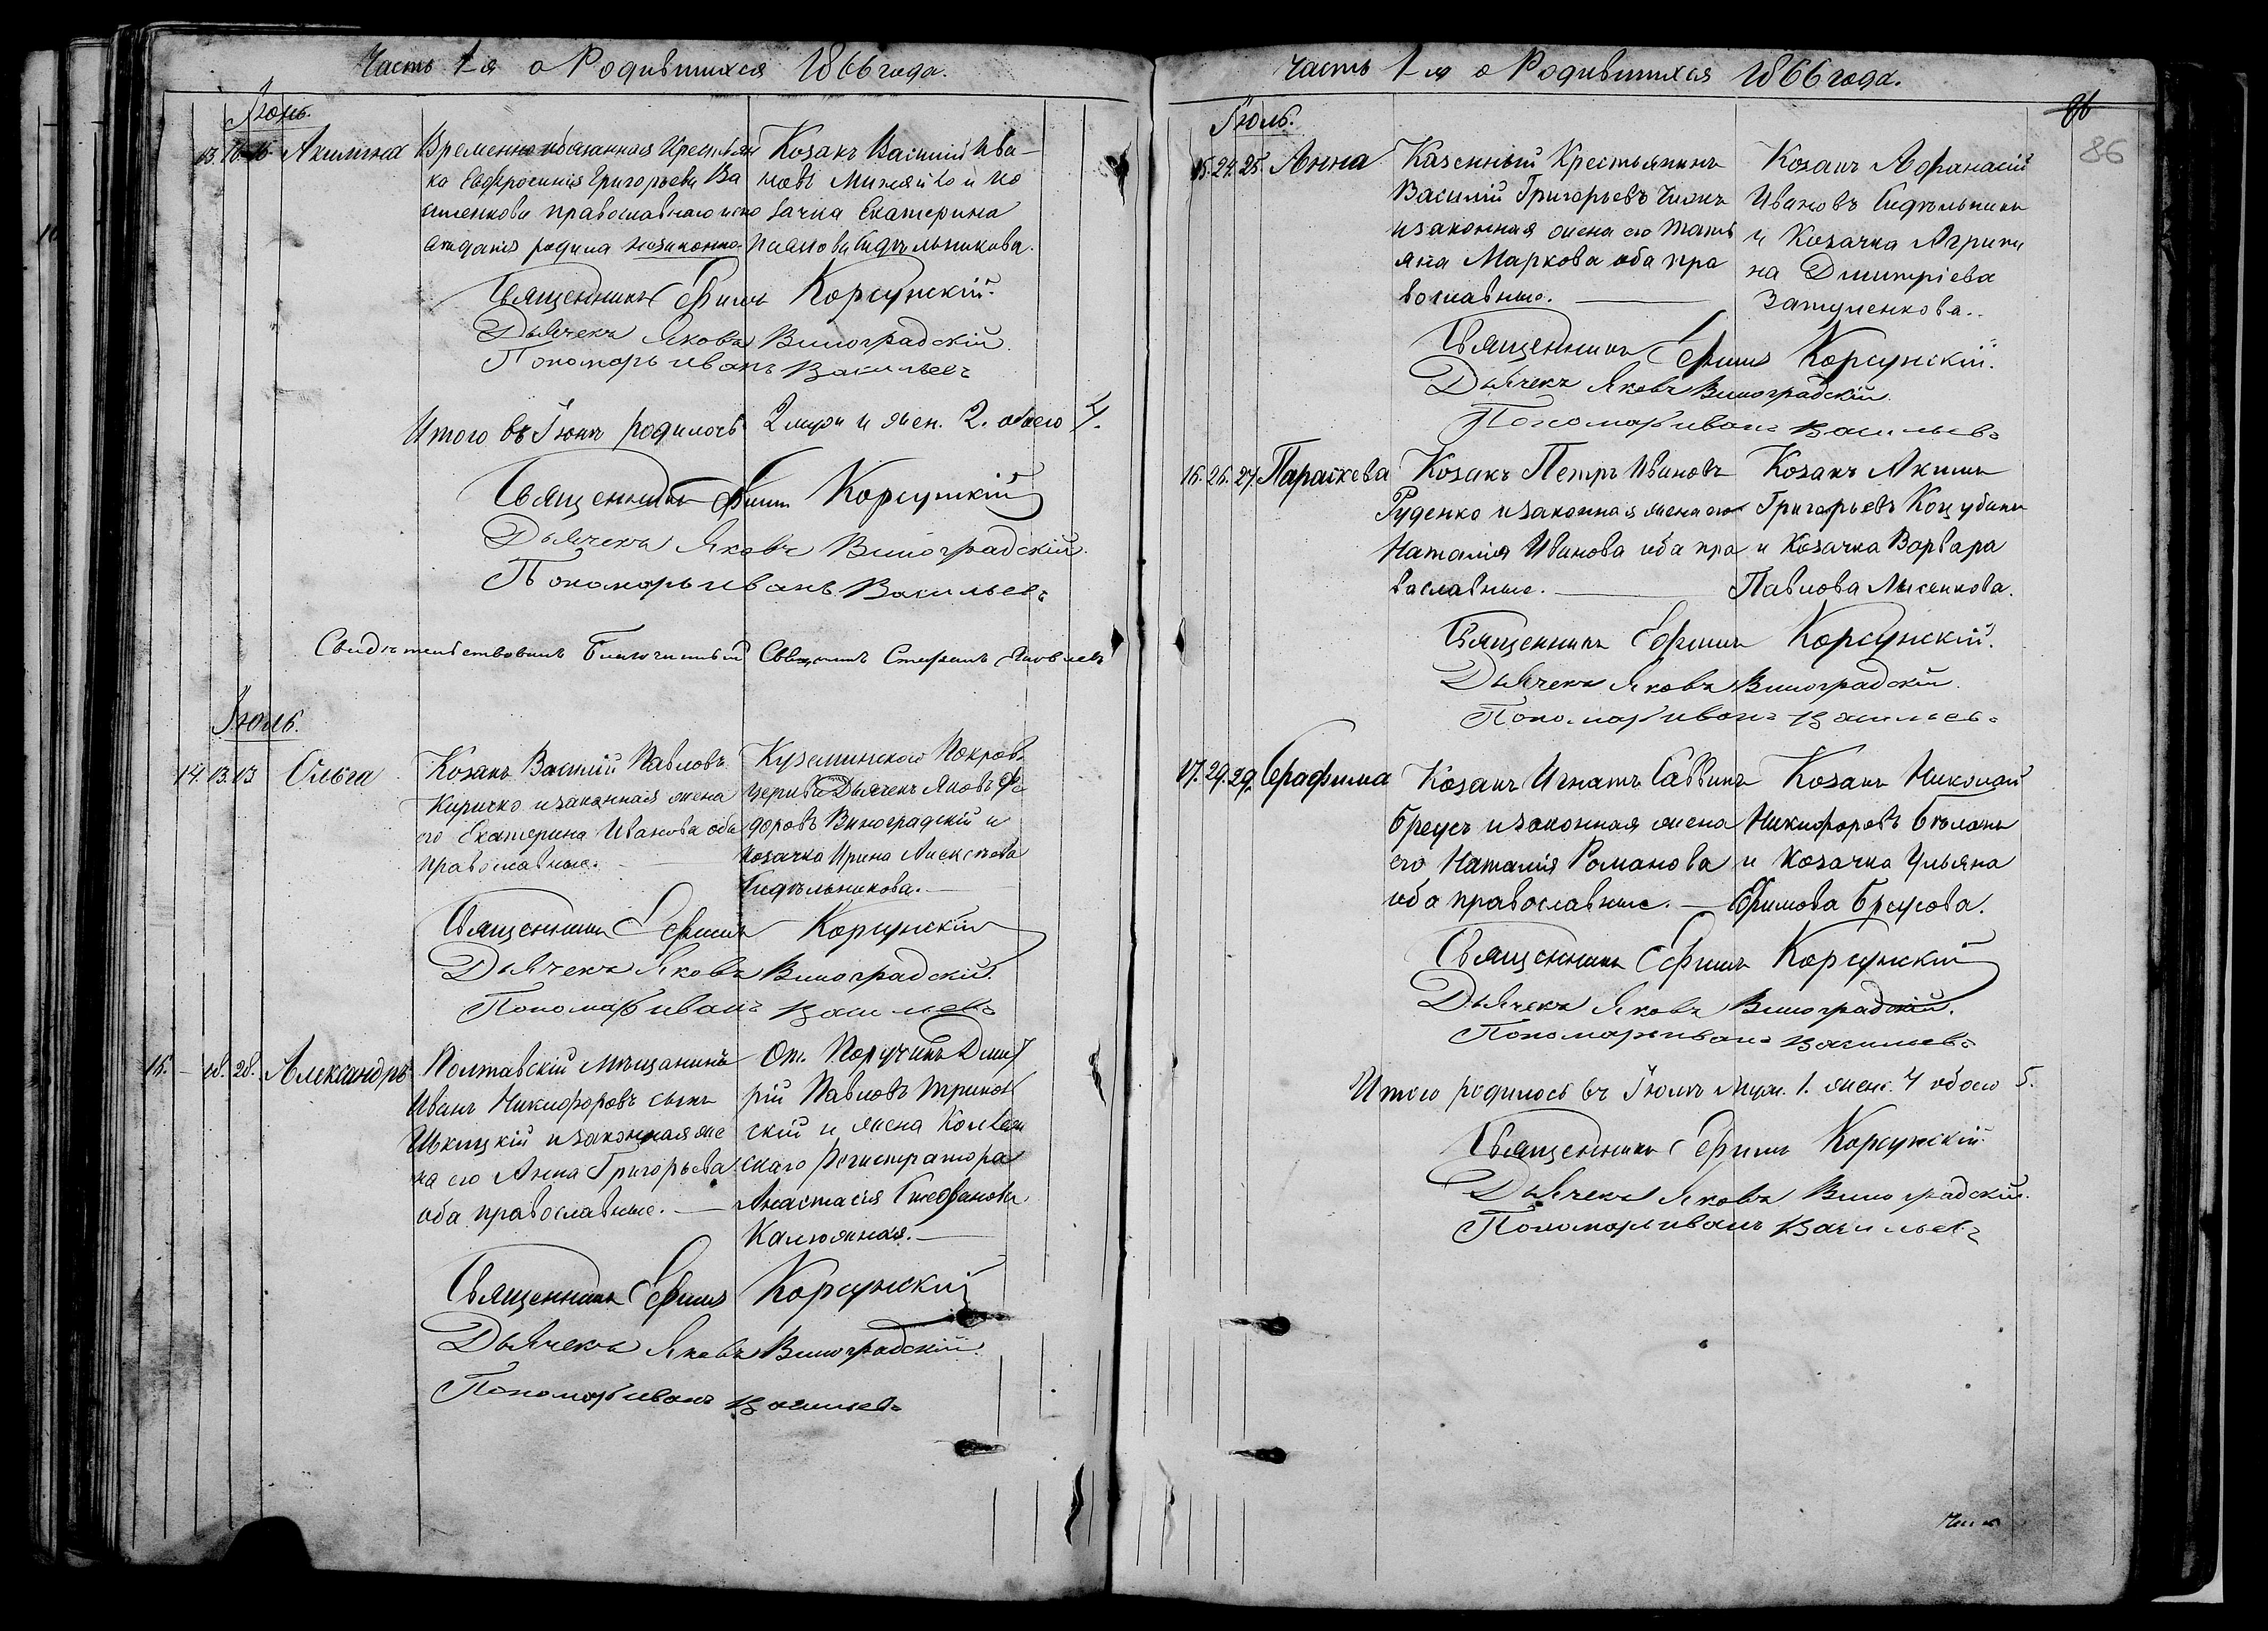 Часть 1-я о Родившихся 1866 года.
Іюнь.
13. 16. 16. Акилина
Временно обязанная Крестьян
ка Евфросинія Григорьева Ва
силенкова православнаго испо
веданія родила незаконно
Козакъ Василій Ива-
новъ Михайло и ко
зачка Екатерина
Сидѣльникова.
Священникъ Ефимъ Корсунскій.
Дьячекъ Яковъ Виноградскій.
Пономарь Иванъ Васильевъ
Итого въ Іюнѣ родилось 2 муж и жен. 2. обоего 4.
Священникъ Ефимъ Корсунскій
Дьячекъ Яковъ Виноградскій.
Пономарь Иванъ Васильевъ
Свидѣтельствовалъ Благочинный Священ. Стефанъ
Іюль.
14. 13. 13 Ольга
Козакъ Василій Павловъ
Киричко и законная жена
его Екатерина Иванова оба
православные.
Куземинской Покров.
церкви Дьячекъ Яковъ Фе
доровъ Виноградскій и
козачка Ирина Алексѣева
Сидѣльникова.
Священникъ Ефимъ Корсунскій
Дьячекъ Яковъ Виноградскій.
Пономарь Иванъ Васильевъ
18. 28. Александръ
Полтавскій мѣщанинъ
Иванъ Никифоровъ сынъ
и законная же
на его Анна Григорьева
оба православные.
От. Поручикъ Дмит
рій Павловъ
скій и жена Коллеж
скаго Регистратора
Анастасія Стефанова
Калюжная.
Священникъ Ефимъ Корсунскій
Дьячекъ Яковъ Виноградскій.
Пономарь Иванъ Васильевъ
Часть 1-я о Родившихся 1866 года.
86
86
Іюль.
15. 24. 25. Анна
Казенный Крестьянинъ
Василій Григорьевъ
и законная жена его Тать
яна Маркова оба пра
вославные.
Козакъ Афанасій
Ивановъ Сидѣльникъ
и Козачка Агрипи
на Димитріева
Затуленкова.
Священникъ Ефимъ Корсунскій.
Дьячекъ Яковъ Виноградскій.
Пономарь Иванъ Васильевъ
16. 26. 27. Параскева
Козакъ Петръ Ивановъ
Руденко и законная жена его
Наталія Иванова оба пра
вославные.
Козакъ Акимъ
Григорьевъ Коцубинъ
и Козачка Варвара
Павлова Лысенкова.
Священникъ Ефимъ Корсунскій.
Дьячекъ Яковъ Виноградскій.
Пономарь Иванъ Васильевъ
17. 29. 29. Серафима
Козакъ Игнатъ Саввинъ
Бреусъ и законная жена
его Наталія Романова
оба православные.
Козакъ Николай
Никифоровъ Бѣланъ
и Козачка Ульяна
Ефимова Бреусова.
Священникъ Ефимъ Корсунскій
Дьячекъ Яковъ Виноградскій.
Пономарь Иванъ Васильевъ
Итого родилось въ Іюлѣ муж. 1. жен. 4 обоего 5.
Священникъ Ефимъ Корсунскій
Дьячекъ Яковъ Виноградскій.
Пономарь Иванъ Васильевъ